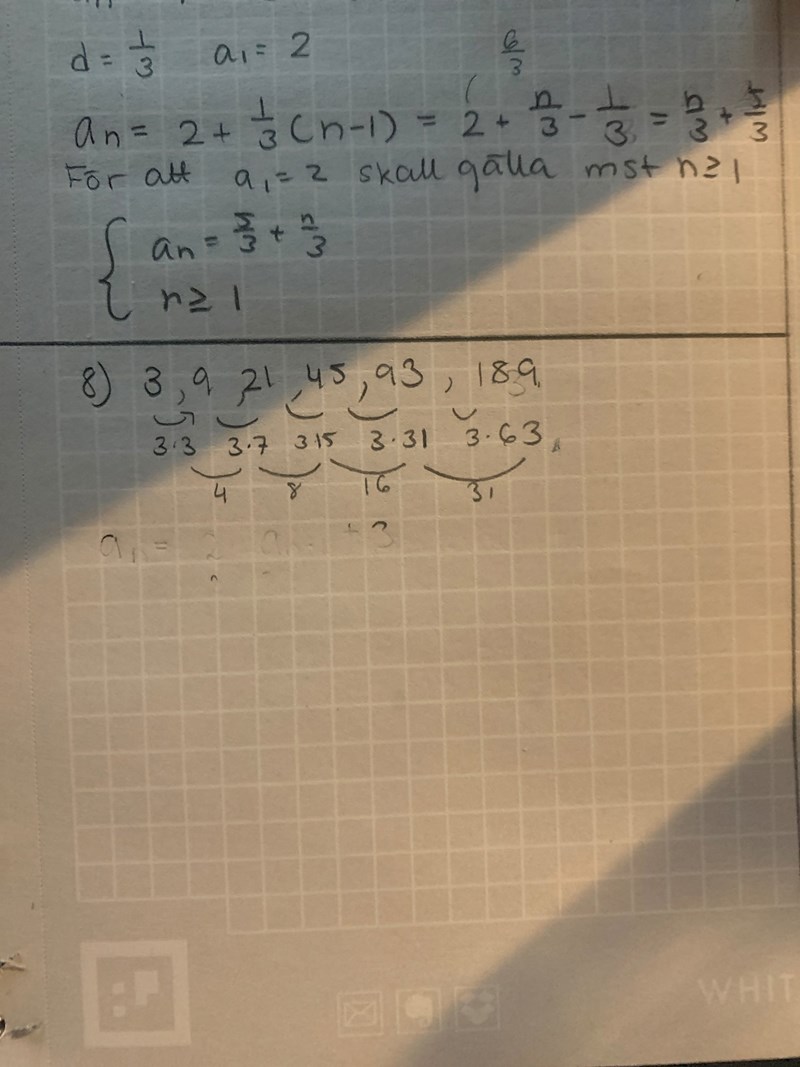 6/3
d = 1/3 a₁ = 2
aₙ = 2 + 1/3 (n-1) = 2 + n/3 - 1/3 = n/3 + 5/3
För att a₁ = 2 skall gälla mst n ≥ 1
{ aₙ = 5/3 + n/3
n ≥ 1
8) 3, 9, 21, 45, 93, 189
3·3 3·7 3·15 3·31 3·63
4 8 16 31
a₁ = + 3
WHIT